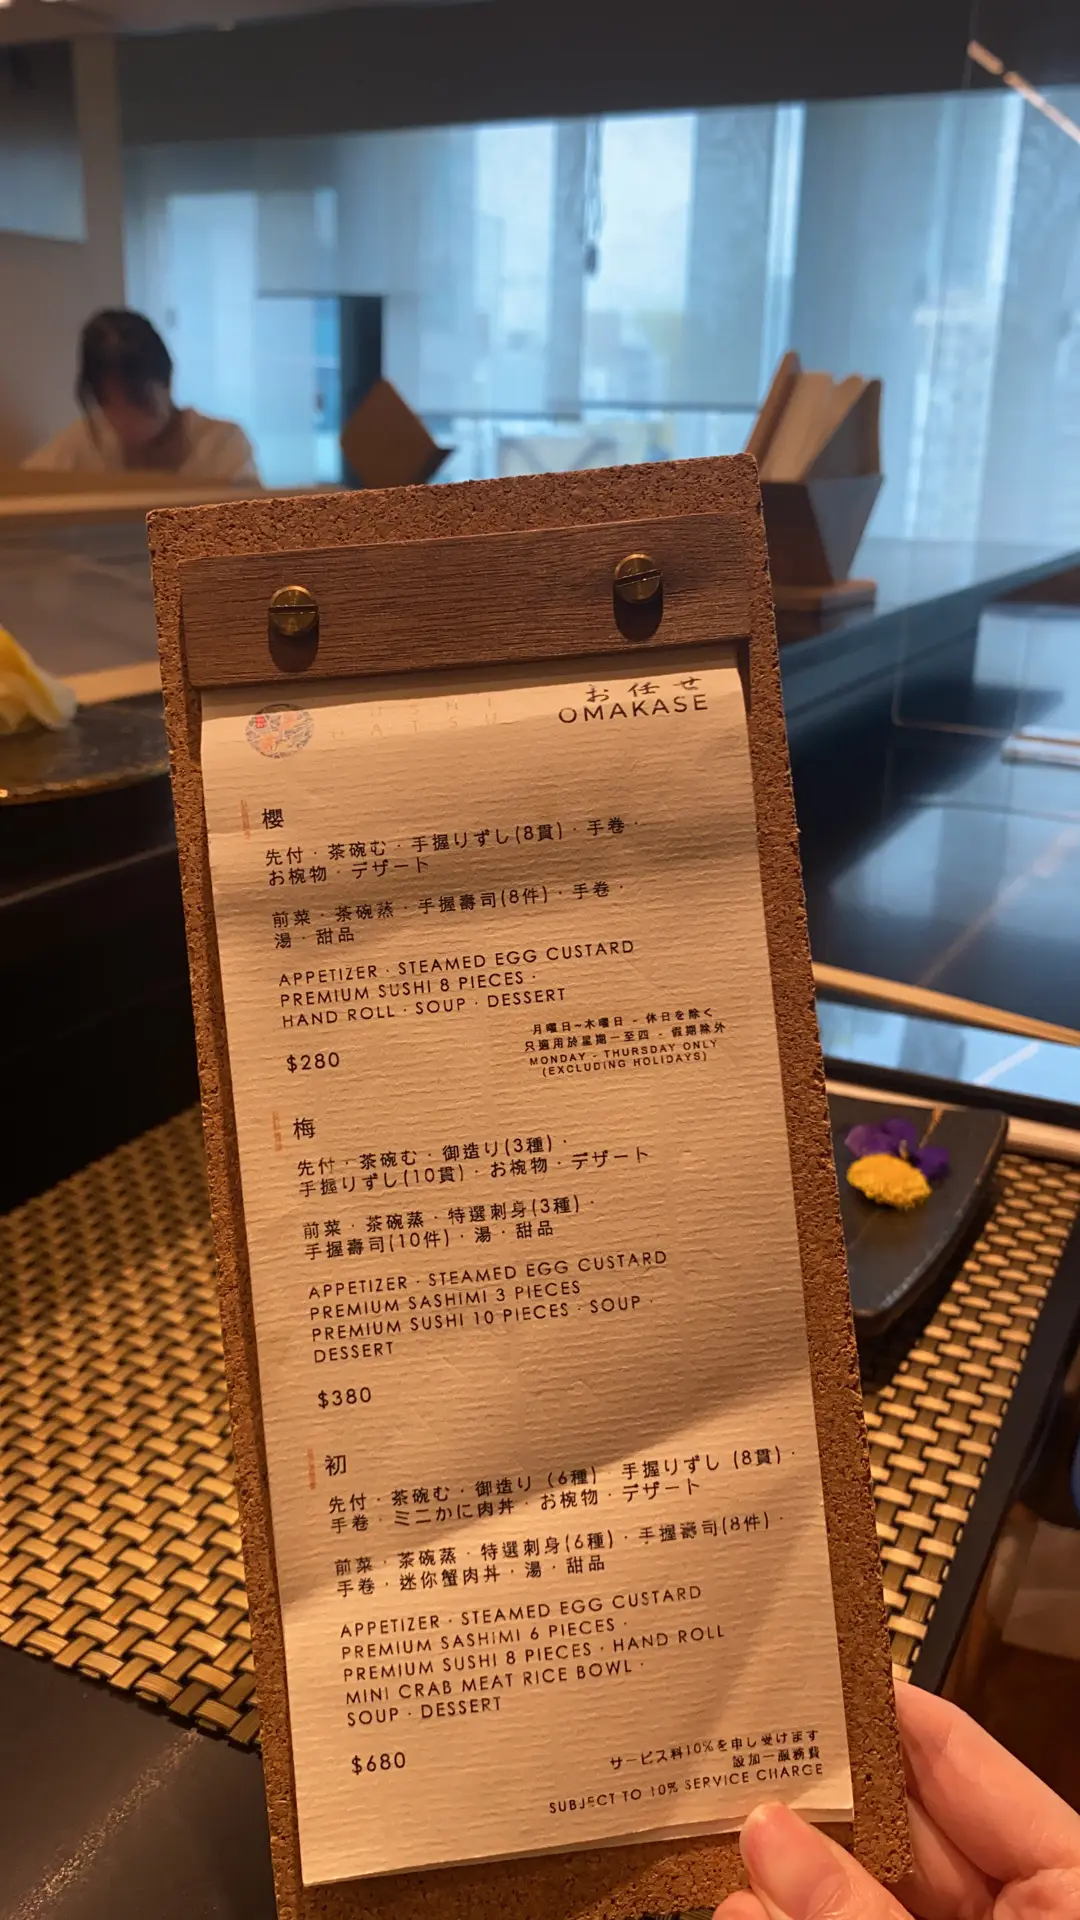 お任せ
OMAKASE
櫻
先付・茶碗む・手握りずし(8貫)・手巻・
お椀物・デザート
前菜・茶碗蒸・手握壽司(8件)・手巻・
湯・甜品
APPETIZER · STEAMED EGG CUSTARD
PREMIUM SUSHI 8 PIECES ·
HAND ROLL · SOUP · DESSERT
$280
月曜日~木曜日 - 休日を除く
只適用於星期一至四 - 假期除外
MONDAY - THURSDAY ONLY
(EXCLUDING HOLIDAYS)
梅
先付・茶碗む・御造り(3種)・
手握りずし(10貫)・お椀物・デザート
前菜・茶碗蒸・特選刺身(3種)・
手握壽司(10件)・湯・甜品
APPETIZER · STEAMED EGG CUSTARD
PREMIUM SASHIMI 3 PIECES
PREMIUM SUSHI 10 PIECES · SOUP ·
DESSERT
$380
初
先付・茶碗む・御造り (6種)・手握りずし (8貫)・
手巻・ミニかに肉丼・お椀物・デザート
前菜・茶碗蒸・特選刺身(6種)・手握壽司(8件)・
手巻・迷你蟹肉丼・湯・甜品
APPETIZER · STEAMED EGG CUSTARD
PREMIUM SASHIMI 6 PIECES ·
PREMIUM SUSHI 8 PIECES · HAND ROLL
MINI CRAB MEAT RICE BOWL ·
SOUP · DESSERT
$680
サービス料10%を申し受けます
設加一服務費
SUBJECT TO 10% SERVICE CHARGE